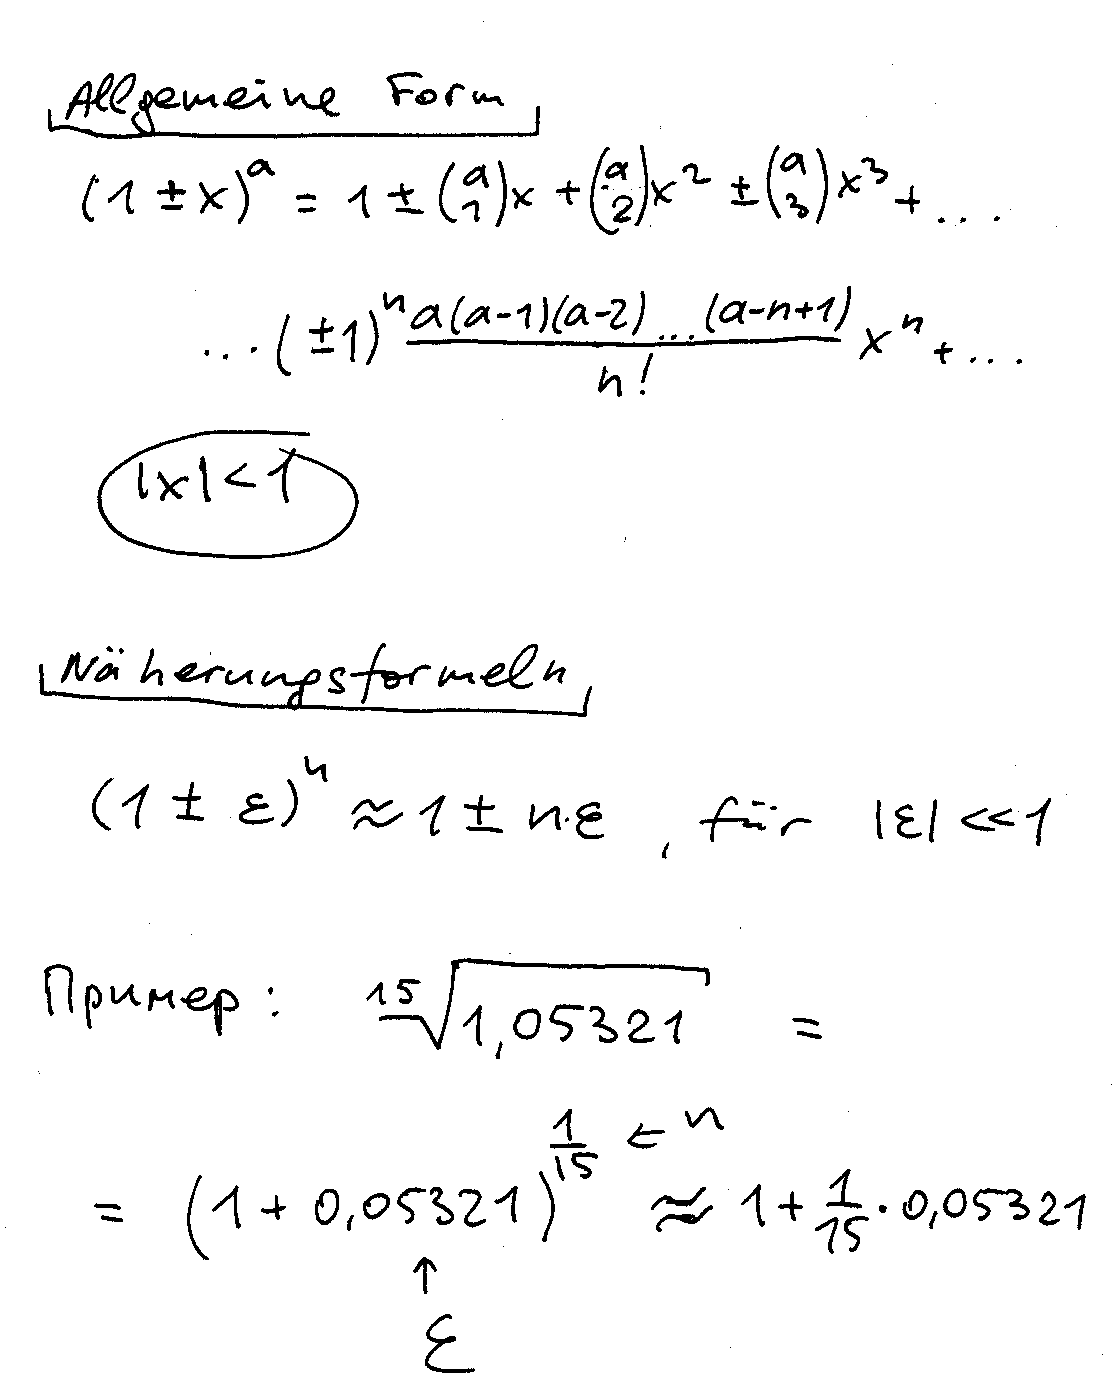 Allgemeine Form
(1 ± x)^a = 1 ± (a 1)x + (a 2)x² ± (a 3)x³ + ...
...(±1)^n a(a-1)(a-2)...(a-n+1)/n! x^n + ...
|x| < 1
Näherungsformeln
(1 ± ε)^n ≈ 1 ± n·ε, für |ε| << 1
Пример: ¹⁵√1,05321 =
= (1 + 0,05321)^(1/15) ← n ≈ 1 + 1/15 · 0,05321
↑
ε